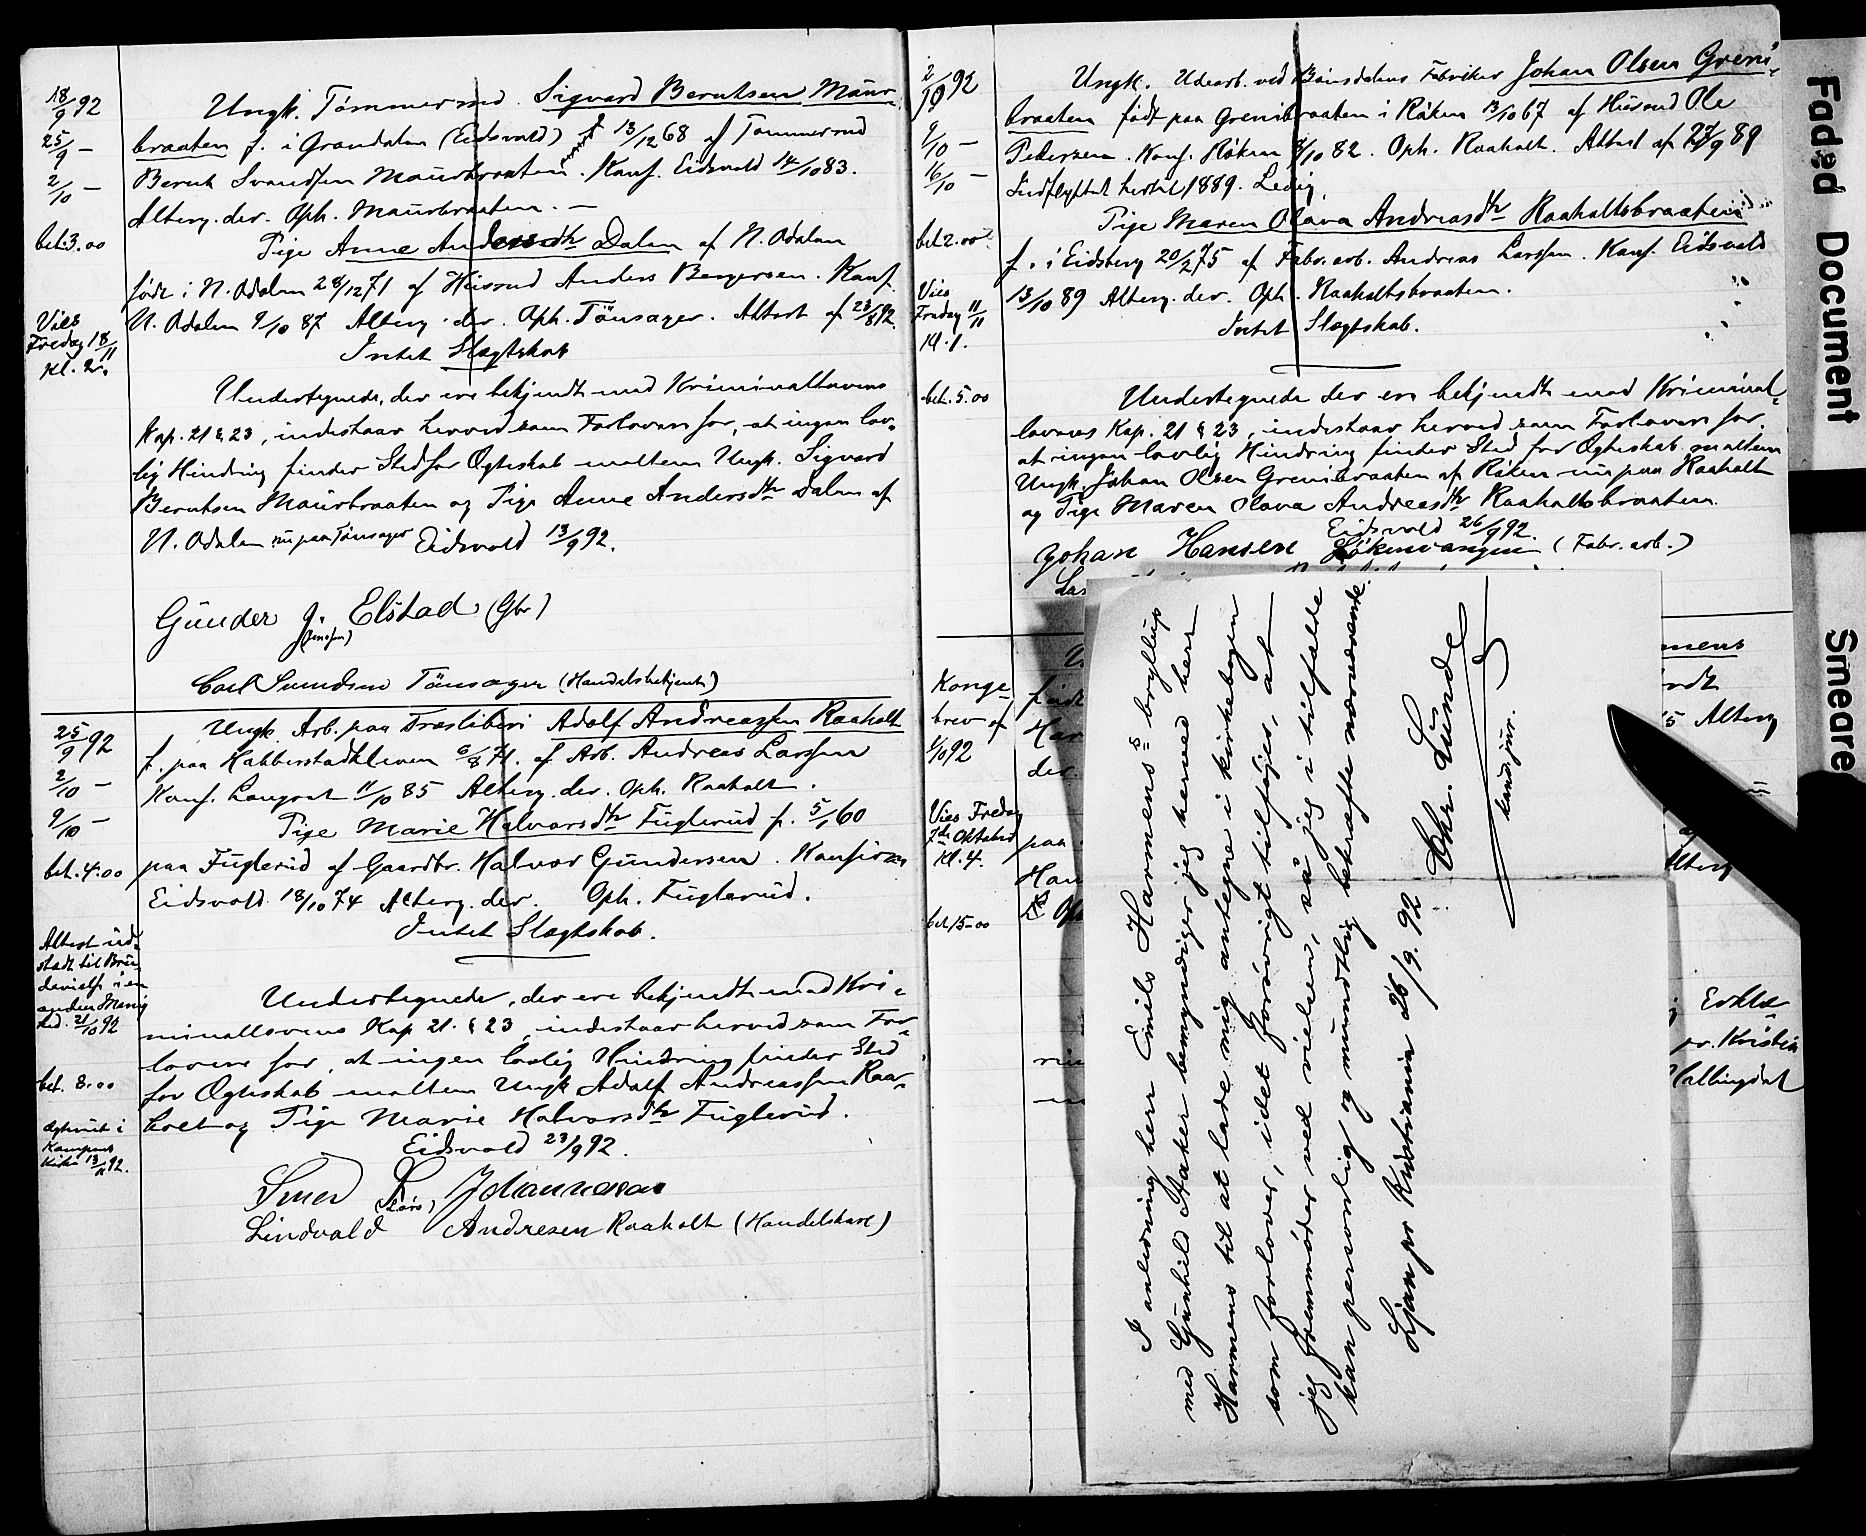 18/9 92
25/9 —
2/10 —
bet. 3.00
Vies
Fredag 18/11
Kl. 2.
Ungk. Tømmermd. Sigvard Berntsen Maur-
braaten f. i Grandalen (Eidsvold) 13/12 68 af Tømmermd
Bernt Svendsen Maurbraaten. Konf. Eidsvold 14/10 83.
Alterg. der. Oph. Maurbraaten. —
Pige Anne Andersdtr Dalen af N. Odalen
født i N. Odalen 28/12 71 af Huusmd Anders Bergersen. Konf.
N. Odalen 9/10 87 Alterg. der. Oph. Tønsager. Attest af 23/8 92.
Intet Slægtskab
Undertegnede, der ere bekjendt med Kriminallovens
Kap. 21 § 23, indestaar herved som Forlovere for, at ingen lov-
lig Hindring finder Sted for Ægteskab mellem Ungk. Sigvard
Berntsen Maurbraaten og Pige Anne Andersdtr Dalen af
N. Odalen nu paa Tønsager Eidsvold 13/9 92.
Gunder J. Elstad (Gbr)
(Jensen)
Carl Tønsager (Handelsbetjent)
25/9 92
2/10 —
9/10 —
bet. 4.00
Attest ud-
stedt til Bru-
devielse i en
anden Menig
hed. 21/10 92
bet. 8.00
Ægteviet i
Kampens
Kirke 13/11 92.
Ungk. Arb. paa Træsliberi Adolf Andreassen Raaholt
f. paa Habberstadkleven 6/8 71. af Arb. Andreas Larssen
Konf. Langset 11/10 85 Alterg. der. Oph. Raaholt.
Pige Marie Halvorsdtr Fuglerud f. 5/1 60
paa Fuglerud af Gaardbr. Halvor Gundersen. Konfirm
Eidsvold 18/10 74 Alterg. der. Oph. Fuglerud.
Intet Slægtskab.
Undertegnede, der ere bekjendt med Kri-
minallovens Kap. 21. § 23, indestaar herved som For-
lovere for, at ingen lovlig Hindring finder Sted
for Ægteskab mellem Ungk Adolf Andreassen Raa-
holt og Pige Marie Halvorsdtr Fuglerud.
Eidsvold 23/9 92.
(Lars) Johannesen
Lindvald Andresen Raaholt (Handelskarl)
2/10 92
9/10 —
16/10 —
bet 2.00.
Vies
Fredag 11/11
Kl. 1.
bet. 5.00
Ungk. Udearb. ved Bønsdalens Fabriker Johan Olsen Greni-
braaten født paa Grenibraaten i Røken 13/10 67 af Huusmd Ole
Pedersen. Konf. Røken 8/10 82. Oph. Raaholt. Attest af 27/9 89
Indflyttet hertil 1889. Ledig
Pige Maren Olava Andreasdtr Raaholtsbraaten
f. i Eidsberg 20/2 75 af Fabr. arb. Andreas Larssen. Konf. Eidsvold
13/10 89 Alterg. der. Oph. Raaholtsbraaten.
Intet Slægtskab.
Undertegnede der ere bekjendt med Kriminal-
lovens Kap. 21 § 23, indestaar herved som Forlovere for,
at ingen lovlig Hindring finder Sted for Ægteskab mellem
Ungk. Johan Olsen Grenibraaten af Røken nu paa Raaholt
og Pige Maren Olava Andreasdtr Raaholtsbraaten.
Eidsvold 26/9 92.
Johan Hansen Løkenvangen (Fabr. arb.)
Konge-
brev af
1/10 92
Vies Fredag
7de Oktober
Kl. 4.
bet 15-00
mens
5 Alterg
Alterg
Erklæ-
pr. Kristia
Hallingdal
I anledning herr Emils Harmens's bryllup
med Gunhild Staker bemyndiger jeg herved herr
Harmens til at lade mig antegne i kirkebogen
som forlover, idet forøvrigt tilføjes, at
jeg fremmøder ved vielsen, så jeg i tilfælde
kan personlig og mundtlig bekræfte nærværende.
Ljan pr Kristiania 26/9. 92
Chr. Lunde
kand. jur.
Faded Document
Smeare